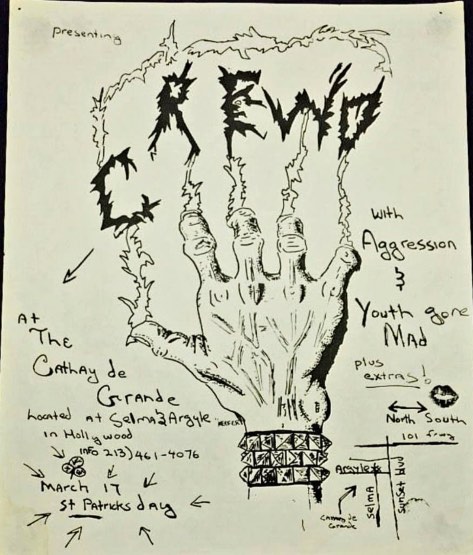 presenting
CREWD
with
Aggression
&
Youth gone
MAD
plus
extras!
At
The
Cathay de
Grande
Located at Selma & Argyle
in Hollywood
INFO 213) 461-4076
March 17
St Patricks day
North South
101 frwy
Argyle
Selma
Sunset Blvd
Cathay de
Grande